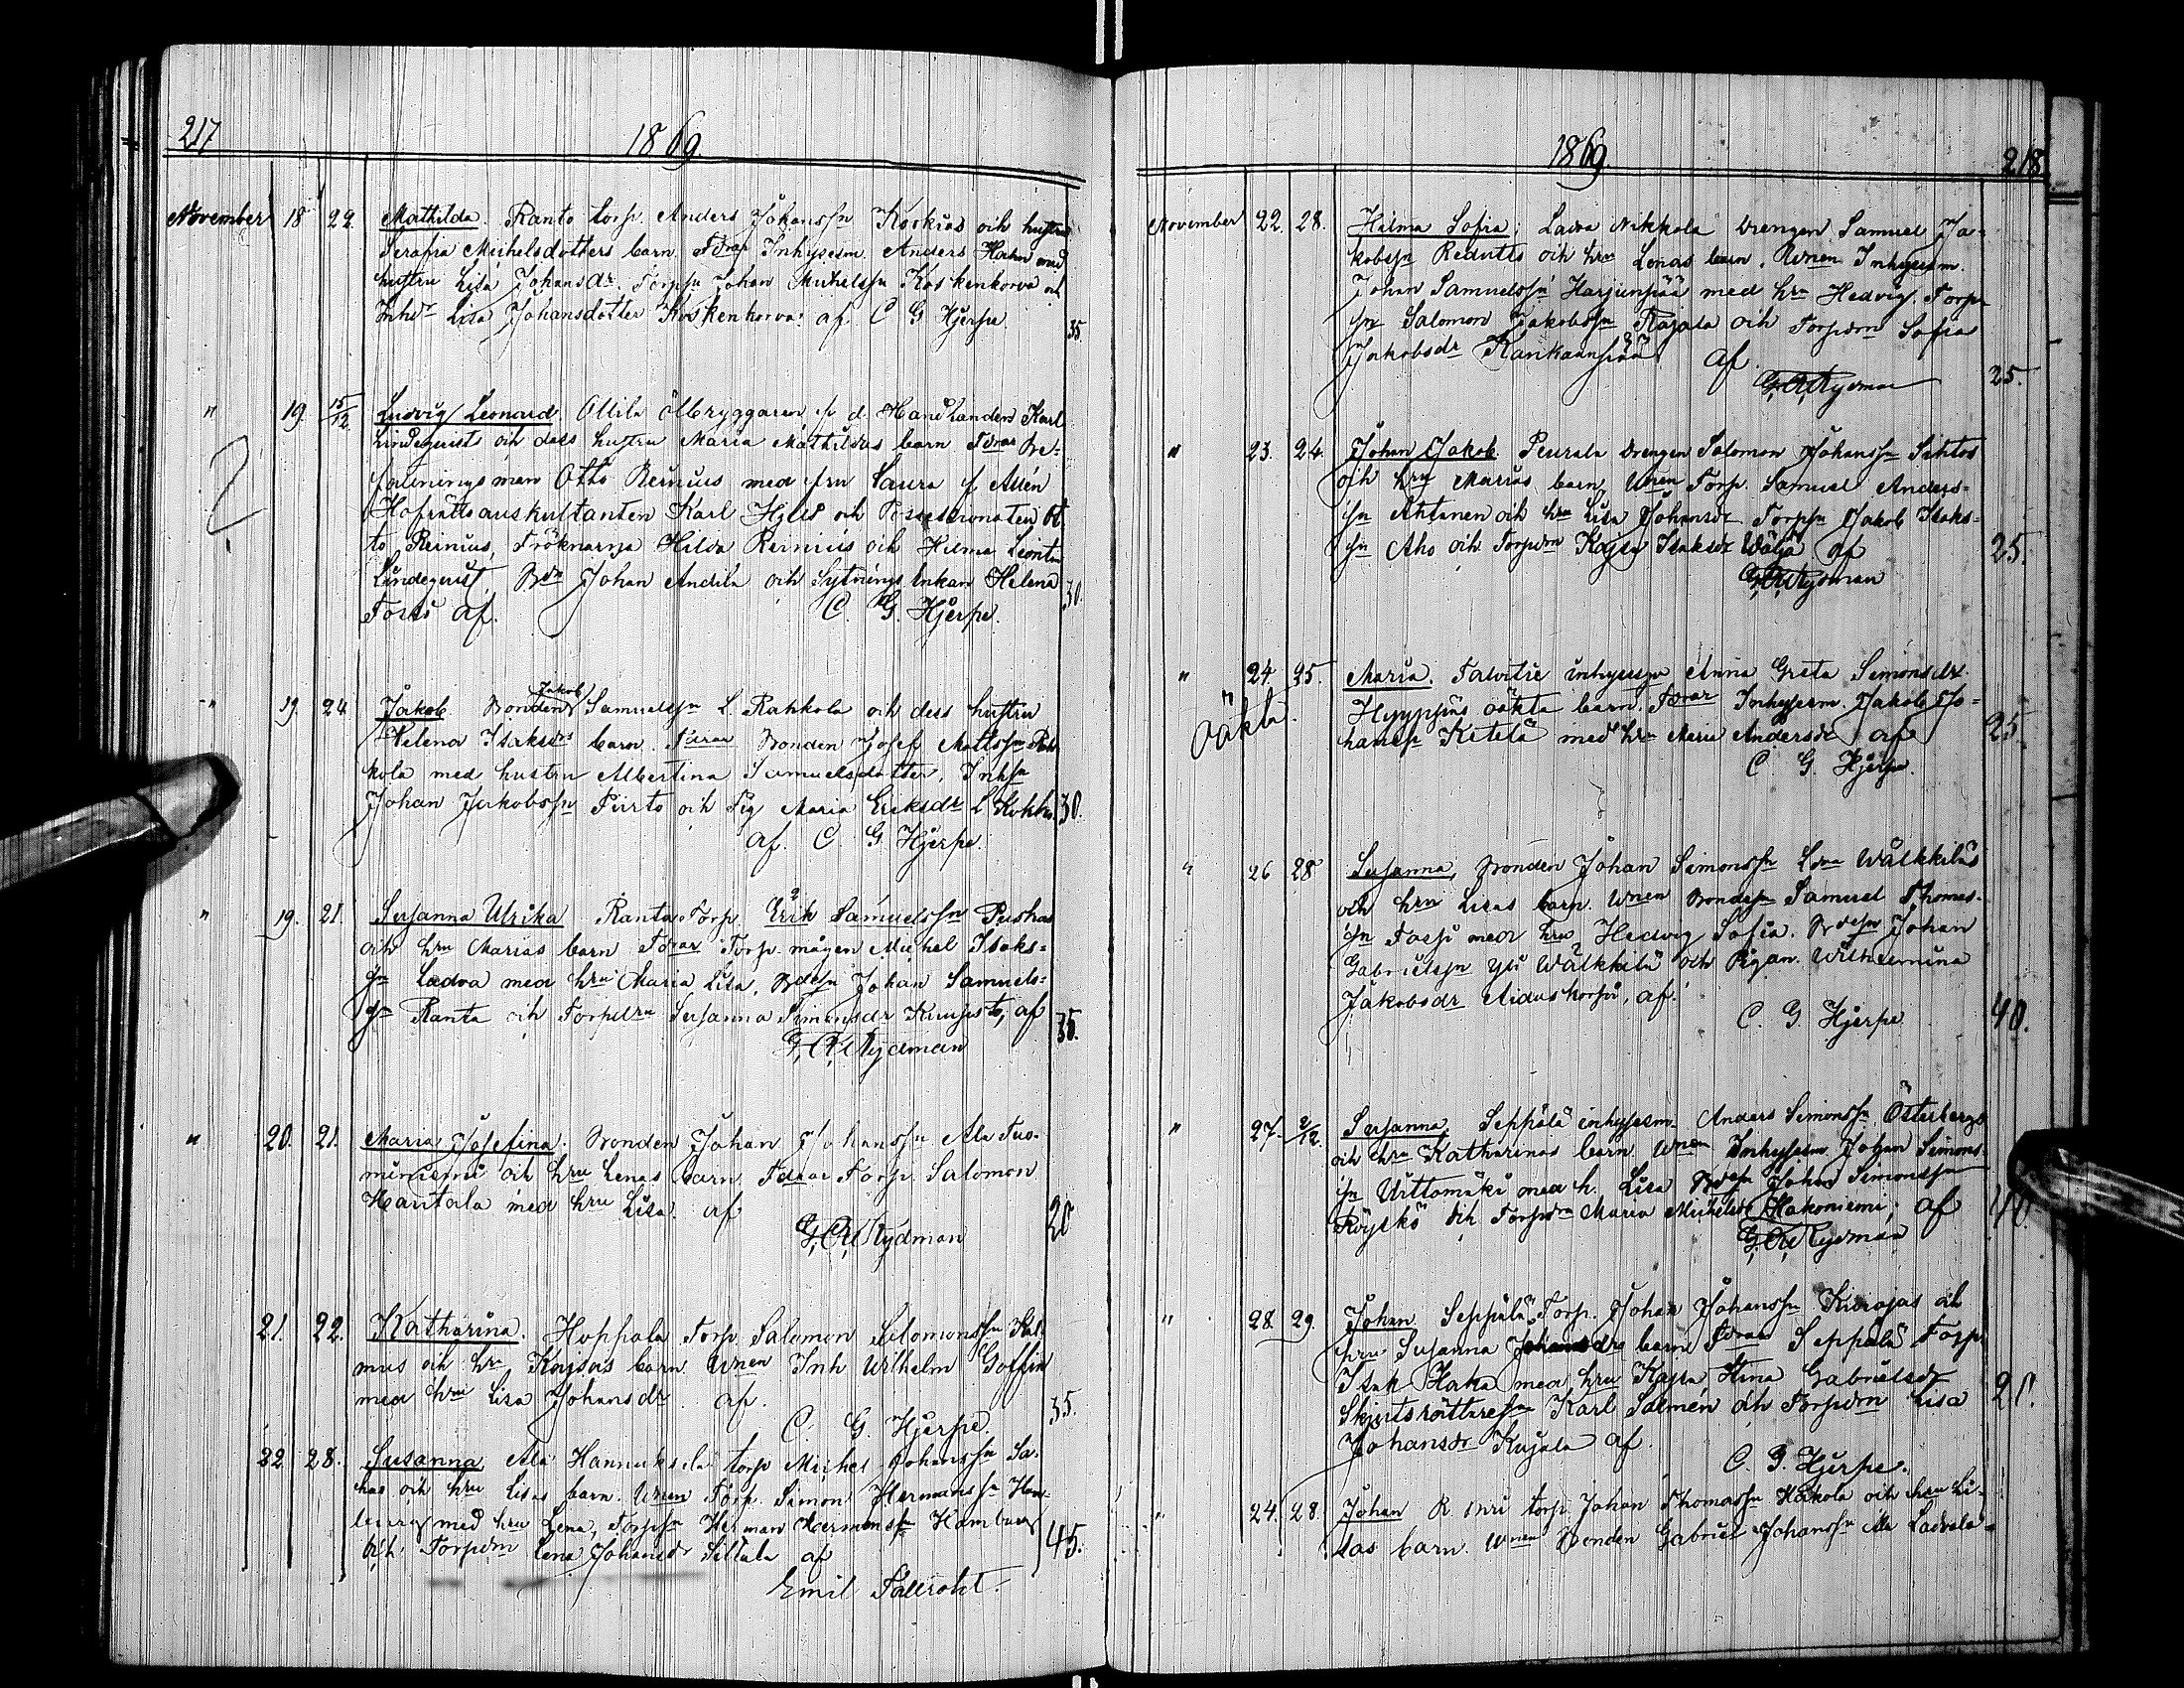 217
1869.
November 18 22. Mathilda. Ranto torp. Anders Johanssn Koskias och hustru
Serafia Michelsdotters barn. Fdrar Inhysesm. Anders Hahn med
hustru Lisa Johansdr. Torpsn Johan Michelssn Koskenkorva och
Inhdr Lisa Johansdotter Koskenkorva. af C G Hjerpe. 35.
" 19. 15/12. Ludvig Leonard. Ollila Ölbryggaren f d. Handlanden Karl
Lindeqvists och dess hustru Maria Mathildas barn. Fdrar Be-
fallningsman Otto Reinius med fru Laura f. Allén
Hofrättsauskultanten Karl Hjelt och Possessionaten Ot
to Reinius, Fröknarna Hilda Reinius och Hilma Leontin
Lindeqvist. Bdn Johan Andila och Sytnings Enkan Helena
Forss af. C. G. Hjerpe. 30.
" 19. 24 Jakob. Bonden Jakob Samuelssn L. Rahkola och dess hustru
Helena Isaksdrs barn. Fdrar Bonden Josef Mattssn Rah
kola med hustru Albertina Samuelsdotter, Inhsn
Johan Jakobssn Piirto och Pig Maria Eriksdr L. Kohhi. 30.
af. C. G. Hjerpe.
" 19. 21. Susanna Ulrika Ranta Torp. Erik Samuelssn Pushas
och hru Marias barn Fdrar Torp. mågen Michel Isaks-
sn Ladva med hru Maria Lisa, Bdesn Johan Samuels-
sn Ranta och Torpdrn Susanna Simonsdr Kuusisto, af 35.
G. A. Rydman
" 20. 21. Maria Josefina. Bonden Johan Johanssn Ala Tuo-
miniemi och hru Lenas barn. Fdrar Torp. Salomon
Hautala med hru Lisa. af 20
G. A. Rydman
21. 22. Katharina. Hoppala Torp. Salomon Salomonssn Kal
mus och hru Kajsas barn. Wnen Inh Wilhelm Goffin
med hru Lisa Johansdr. af. 35.
C. G. Hjerpe.
22 28. Susanna Ala Hannuksela torp Michel Johanssn Sa-
has och hru Lisas barn. Wnen Torp. Simon Hermanssn Ham-
berg med hru Lena, Torpsn Herman Hermanssn Hamberg
och Torpdrn Lena Johansdr Siltala af 45.
Emil Fällroht.
1869.
218
November 22. 28. Hilma Sofia; Ladva Nikkola Drengen Samuel Ja-
kobssn Redutts och hru Lenas barn. Wnen Inhysesm.
Johan Samuelssn Harjunpää med hru Hedvig. Torp-
sn Salomon Jakobssn Rajala och Torpdrn Sofia
Jakobsdr Kankaanpää af 25.
G. A. Rydman
" 23. 24. Johan Jakob. Peurala Drengen Salomon Johanssn Sihtos
och hru Marias barn, Wnen Torp. Samuel Anders-
sn Ahtanen och hru Lisa Johansdr. Torpsn Jakob Isaks-
sn Aho och Torpdrn Kajsa Isaksdr Wäljä af 25.
G. A. Rydman
" 24. 25. Maria. Talvitie inhysespn Anna Greta Simonsdr
oäkta. Hyyppäs oäkta barn. Fdrar Inhysesm. Jakob Jo-
hanssn Ketelä med hru Maria Andersdr af 25
C. G. Hjerpe.
" 26 28 Susanna, Bonden Johan Simonssn Ldva Wälkkiläs
och hru Lisas barn. Wnen Bondesn Samuel Thomas-
sn Fossi med hru Hedvig Sofia. Bdesn Johan
Gabrielssn Yli Wälkkilä och Pigan Wilhelmina
Jakobsdr Aidaskorpi, af.
C. G. Hjerpe. 40.
" 27. 2/12. Susanna. Seppälä inhysesm. Anders Simonssn Österbergs
och hru Katharinas barn Wnen Inhysesm Johan Simons-
sn Uittomäki med h. Lisa Bdesn Johan Simonssn
Röyskö och Torpdrn Maria Michelsdr Hakoniemi; af 40.
G. A. Rydman
" 28. 29. Johan Seppälä Torp. Johan Johanssn Kurojas och
hru Susanna Johansdrs barn Fdrar Seppälä Torp
Isak Haka med hru Kajsa Stina Gabrielsdr
Skjutsrättaresn Karl Salmén och Torpdrn Lisa 20.
Johansdr Kujala af.
C. G. Hjerpe.
" 24. 28. Johan torp. Johan Thomassn Hakola och hru Li-
sas barn. Wnen Bonden Gabriel Johanssn Ala Ladvala-